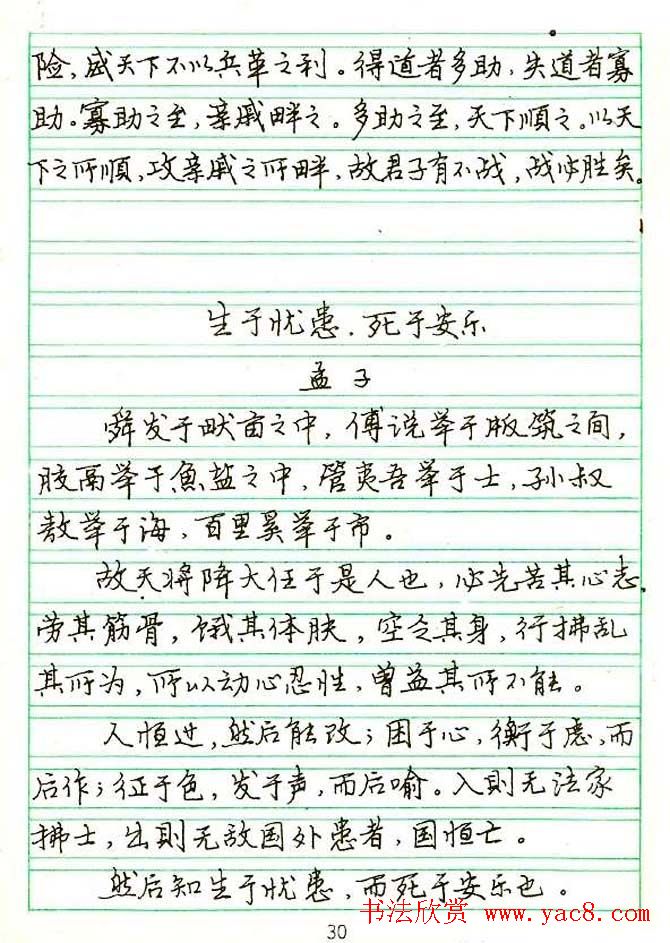 险，威天下不以兵革之利。得道者多助，失道者寡
助。寡助之至，亲戚畔之。多助之至，天下顺之。以天
下之所顺，攻亲戚之所畔，故君子有不战，战必胜矣。
生于忧患．死于安乐
孟子
舜发于畎亩之中，傅说举于版筑之间，
胶鬲举于鱼盐之中，管夷吾举于士，孙叔
敖举于海，百里奚举于市。
故天将降大任于是人也，必先苦其心志，
劳其筋骨，饿其体肤，空乏其身，行拂乱
其所为，所以动心忍性，曾益其所不能。
人恒过，然后能改；困于心，衡于虑，而
后作；征于色，发于声，而后喻。入则无法家
拂士，出则无敌国外患者，国恒亡。
然后知生于忧患，而死于安乐也。
书法欣赏 www.yac8.com
30